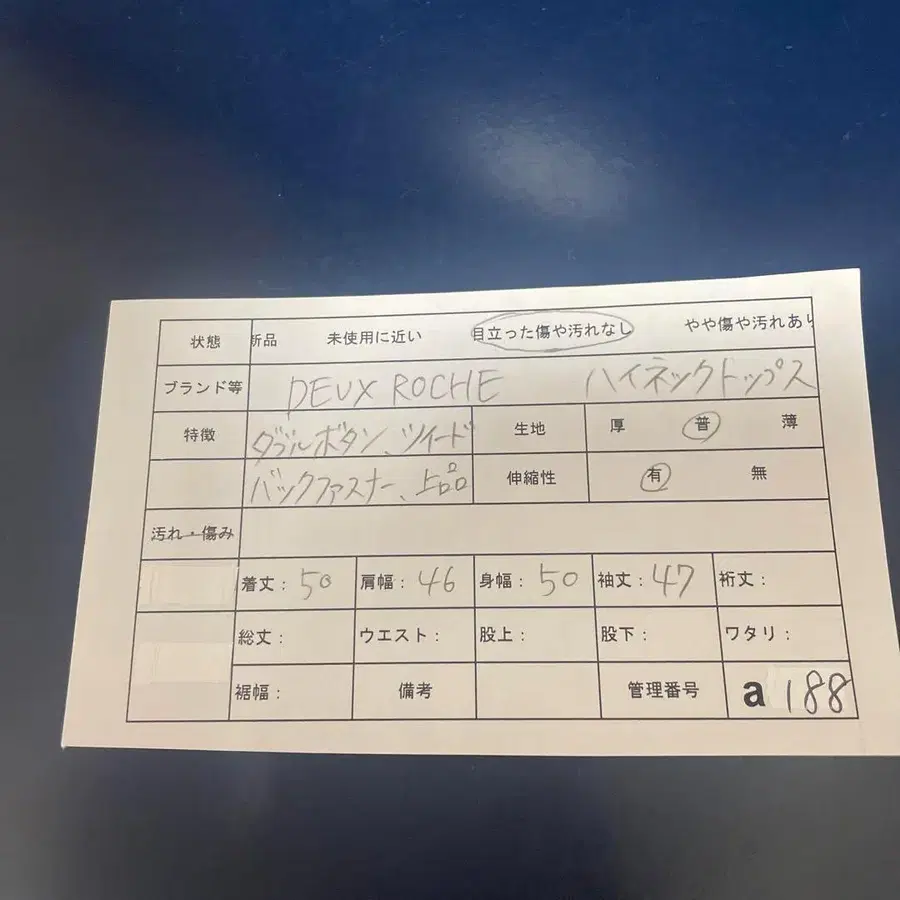 状態 新品 未使用に近い 目立った傷や汚れなし やや傷や汚れあり
ブランド等 DEUX ROCHE ハイネックトップス
特徴 ダブルボタン、ツイード 生地 厚 普 薄
バックファスナー、上品 伸縮性 有 無
汚れ・傷み
着丈： 50 肩幅： 46 身幅： 50 袖丈： 47 裄丈：
総丈： ウエスト： 股上： 股下： ワタリ：
裾幅： 備考 管理番号 a 188